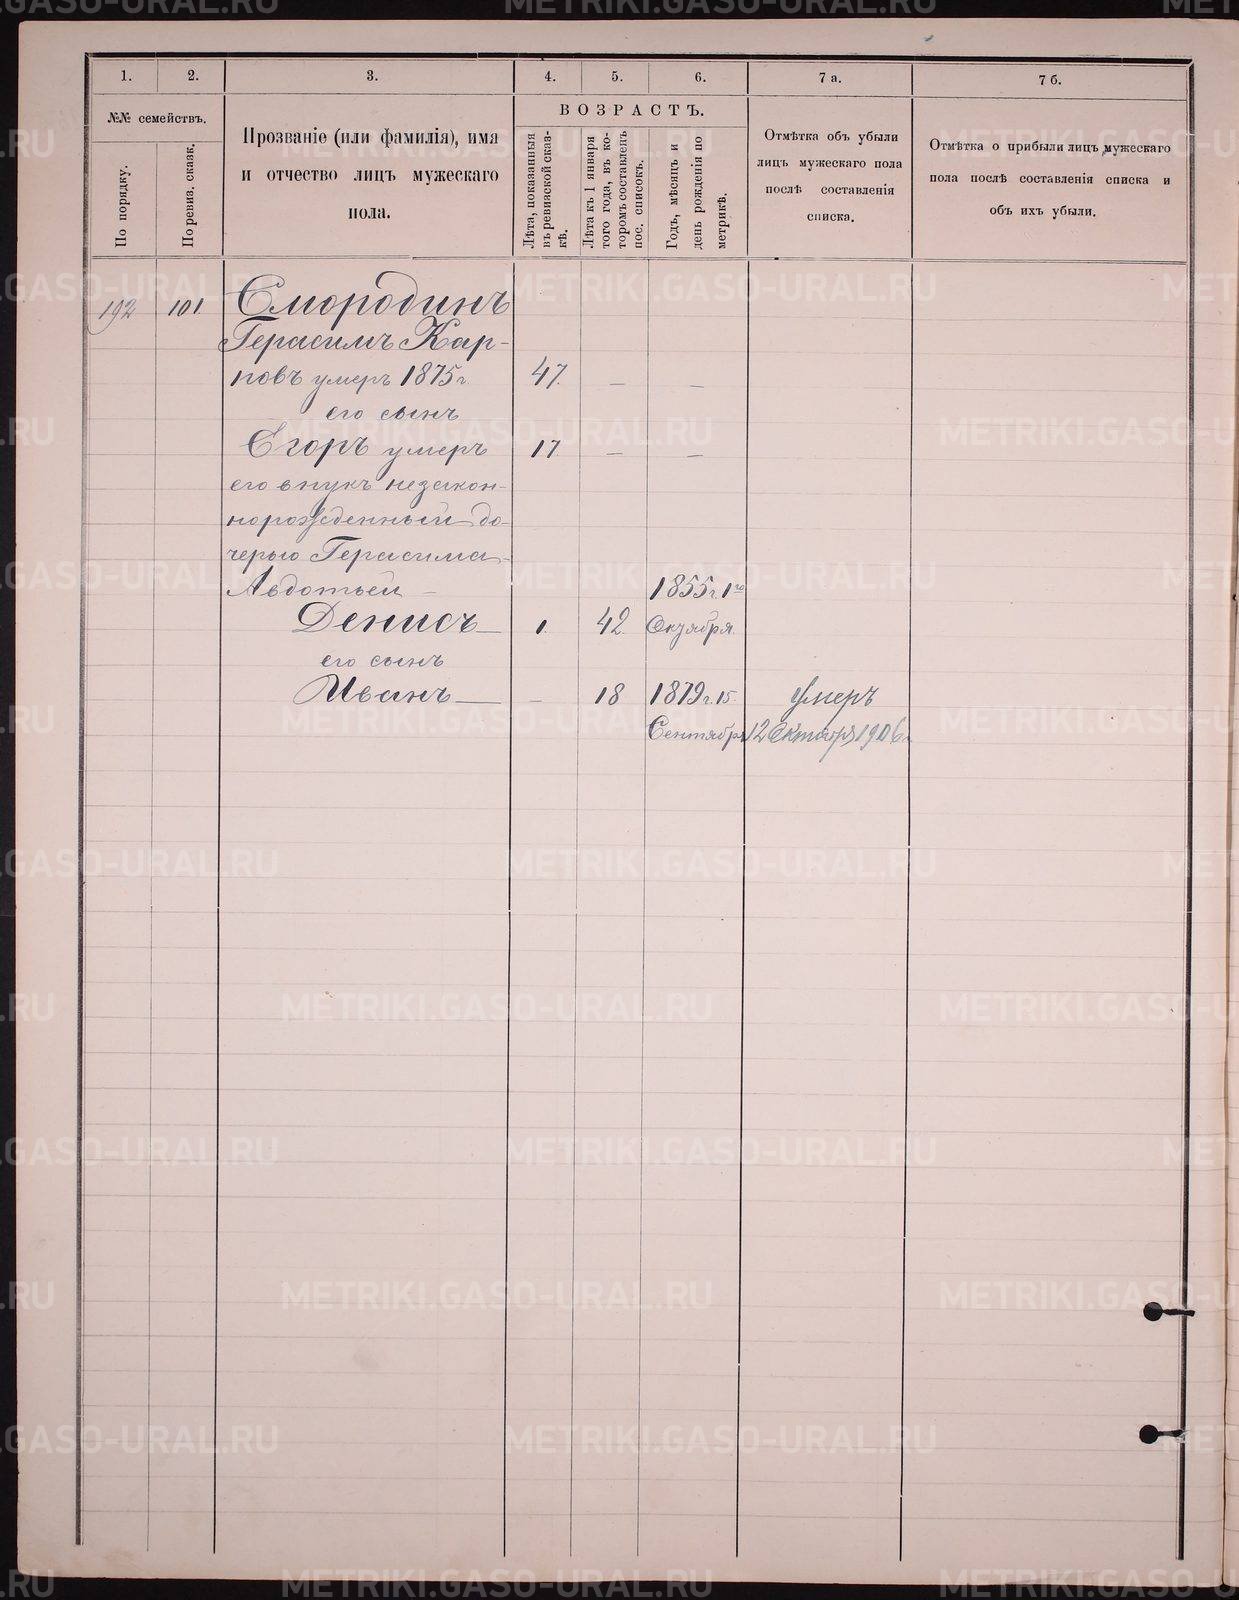 1.
2.
3.
4.
5.
6.
7 а.
7 б.
№№ семействъ.
По порядку.
По ревиз. сказк.
Прозваніе (или фамилія), имя
и отчество лицъ мужескаго
пола.
ВОЗРАСТЪ.
Лѣта, показанныя
въ ревизской сказ-
кѣ.
Лѣта къ 1 января
того года, въ ко-
торомъ составленъ
пос. списокъ.
Годъ, мѣсяцъ и
день рожденія по
метрикѣ.
Отмѣтка объ убыли
лицъ мужескаго пола
послѣ составленія
списка.
Отмѣтка о прибыли лицъ мужескаго
пола послѣ составленія списка и
объ ихъ убыли.
192 101 Смородинъ
Герасимъ Кар-
повъ умеръ 1875 г. 47. — —
его сынъ
Егоръ умеръ 17 — —
его внукъ незакон-
норожденный до-
черью Герасима
Авдотьей — 1855 г. 1го
Денисъ — 1. 42. Октября.
его сынъ
Иванъ — — 18 1879 г. 15. умеръ
Сентября 12 Октября 1906 г.
METRIKI.GASO-URAL.RU